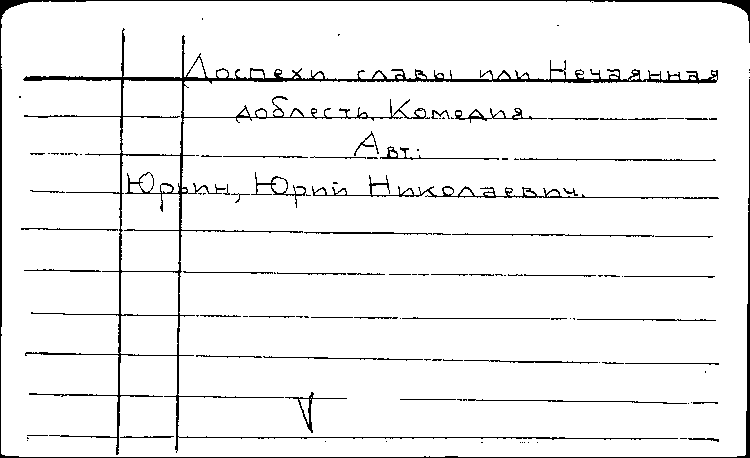 Доспехи славы или Нечаянная
доблесть. Комедия.
Авт.:
Юрьин, Юрий Николаевич.